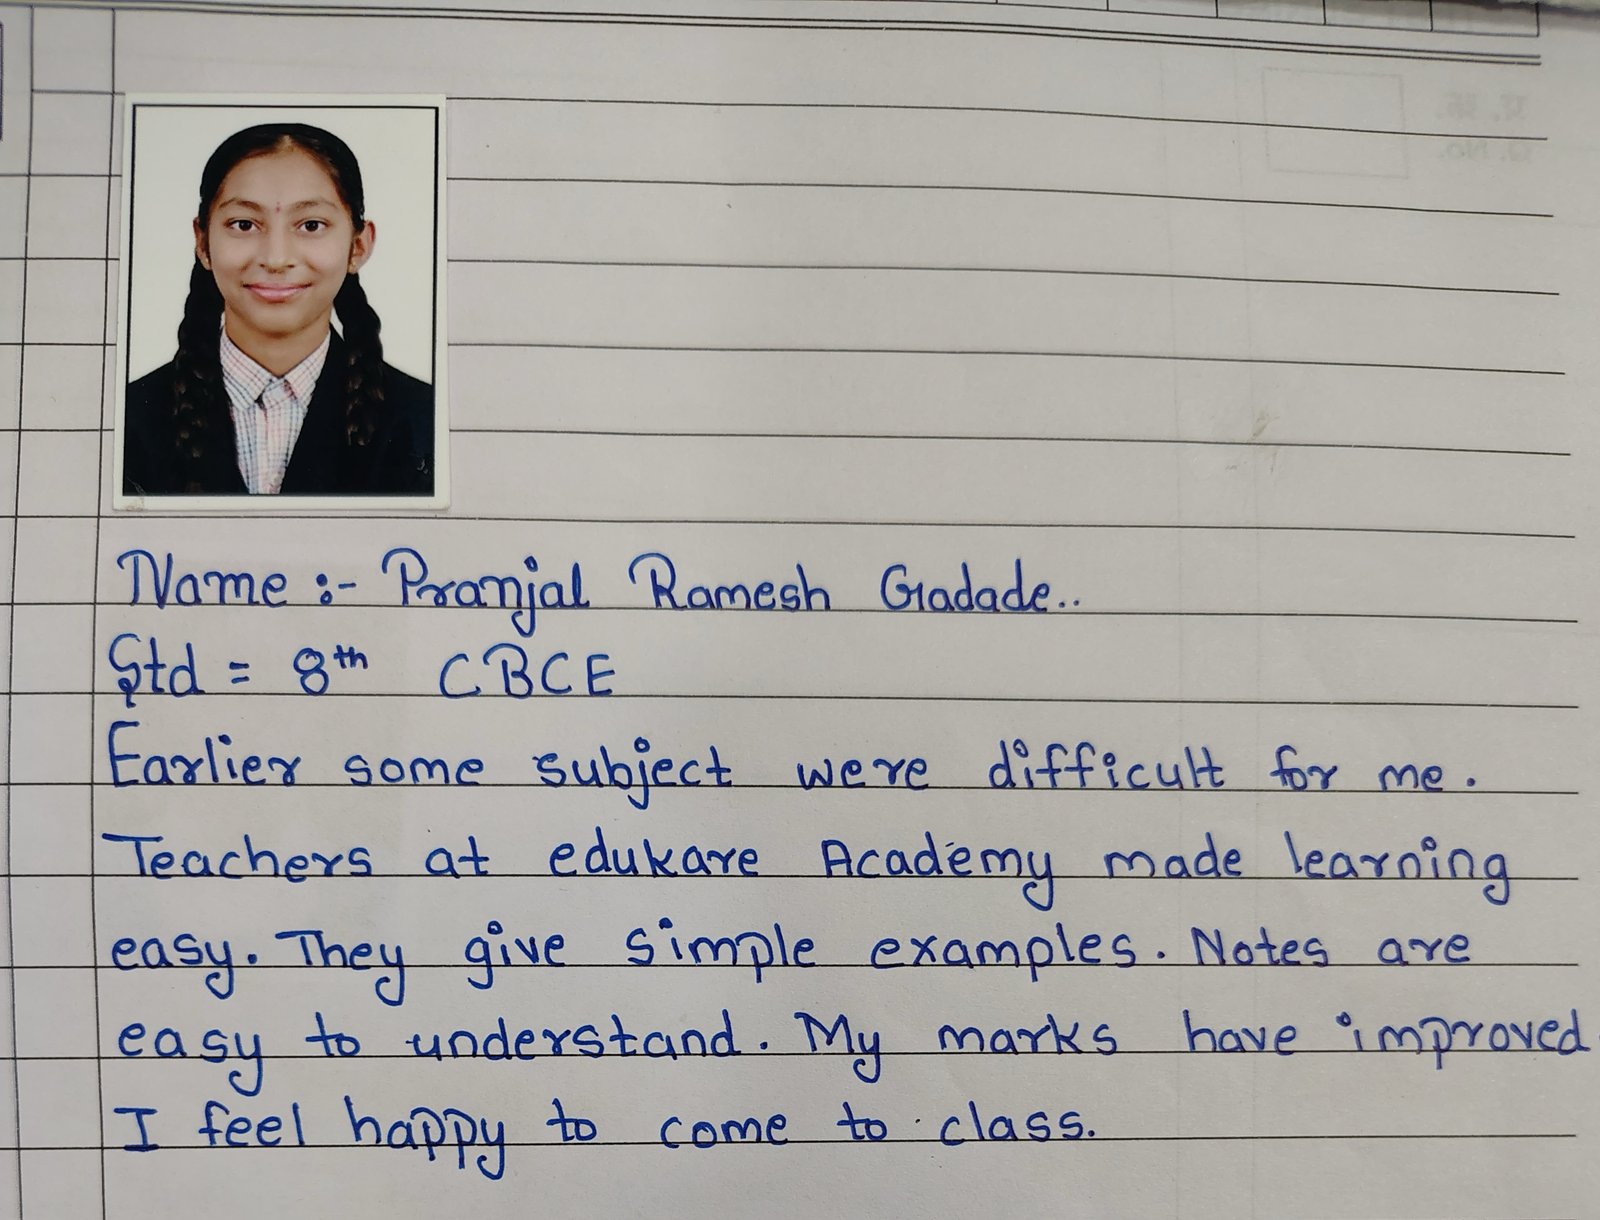 Name :- Pranjal Ramesh Gadade..
Std = 8th CBCE
Earlier some subject were difficult for me.
Teachers at edukare Academy made learning
easy. They give simple examples. Notes are
easy to understand. My marks have improved
I feel happy to come to class.